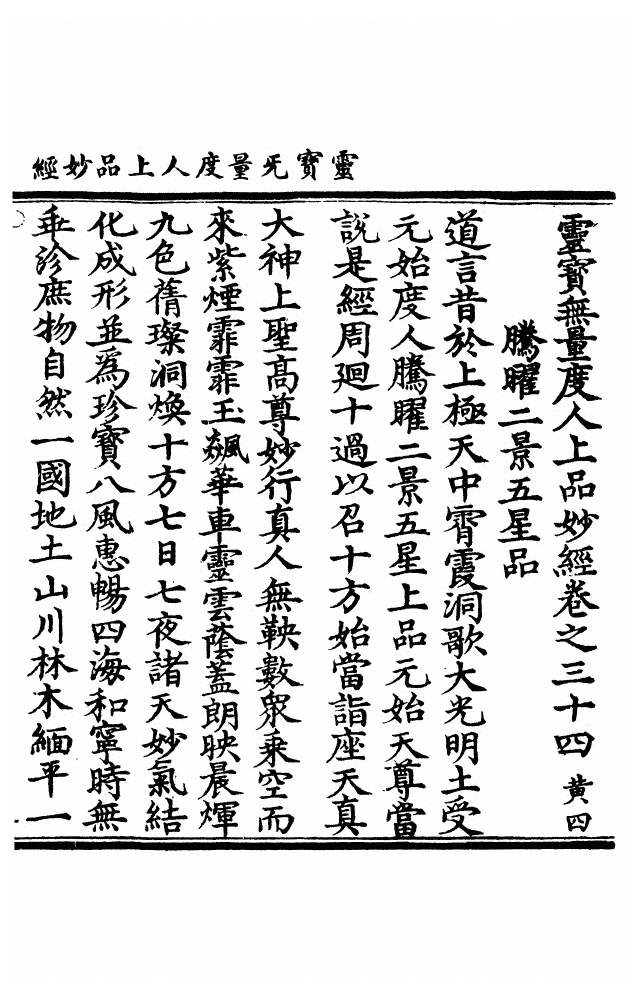 靈寶无量度人上品妙經
靈寶無量度人上品妙經卷之三十四 黃四
騰曜二景五星品
道言昔於上極天中霄霞洞歌大光明土受
元始度人騰曜二景五星上品元始天尊當
說是經周廻十過以召十方始當詣座天真
大神上聖高尊妙行真人無鞅數衆乘空而
來紫煙霏霏玉飆華車靈雲蔭蓋朗映晨煇
九色蒨璨洞煥十方七日七夜諸天妙氣結
化成形並為珍寶八風惠暢四海和寧時無
垂沴庶物自然一國地土山川林木緬平一